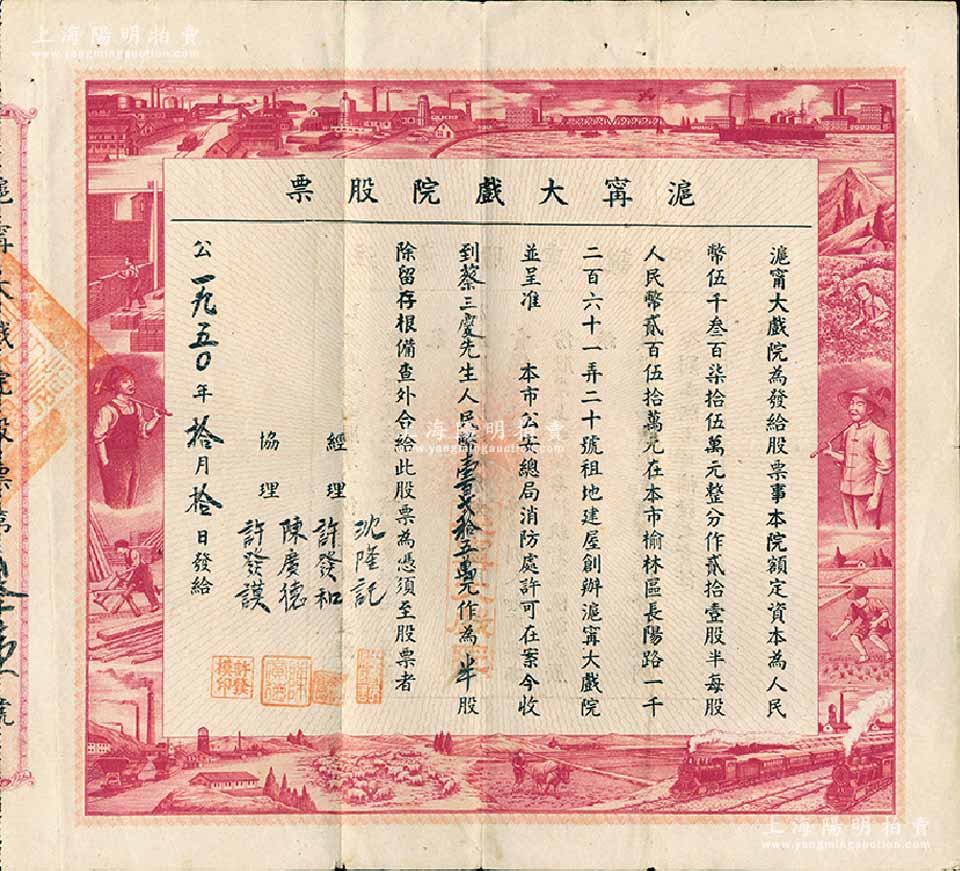 上海陽明拍賣
www.yangmingauction.com
滬甯大戲院股票
滬甯大戲院為發給股票事本院額定資本為人民
幣伍千叁百柒拾伍萬元整分作貳拾壹股半每股
人民幣貳百伍拾萬元在本市榆林區長陽路一千
二百六十一弄二十號祖地建屋創辦滬甯大戲院
並呈准 本市公安總局消防處許可在案今收
到蔡三慶先生人民幣壹百貳拾五萬元作為半股
除留存根備查外合給此股票為憑須至股票者
經理 沈隆記
許發和
協理 陳慶德
許發謨
公一九五〇年拾月拾日發給
滬甯大戲院股票第 號
許發謨印
海陽明拍賣
yangmingauction.com
上海陽明拍賣
www.yangmingauction.com